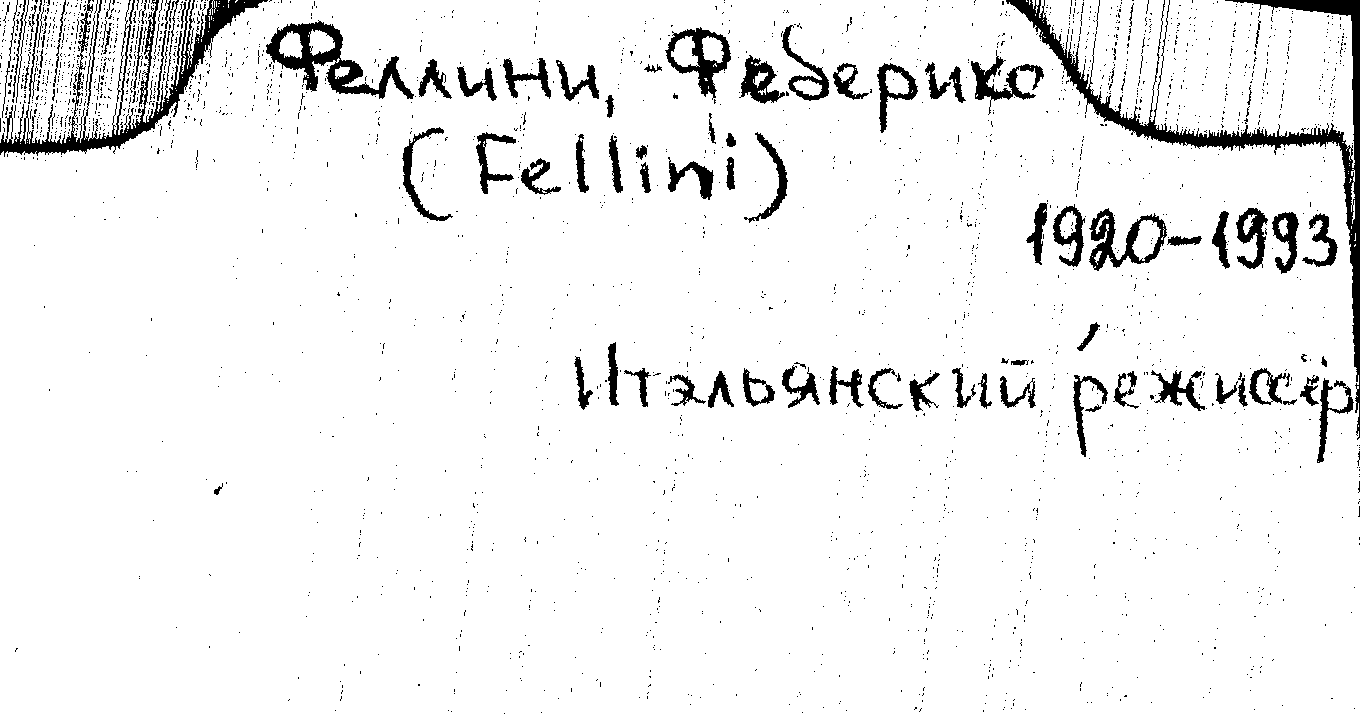 Феллини, Федерико
(Fellini)
1920-1993
Итальянский режиссёр